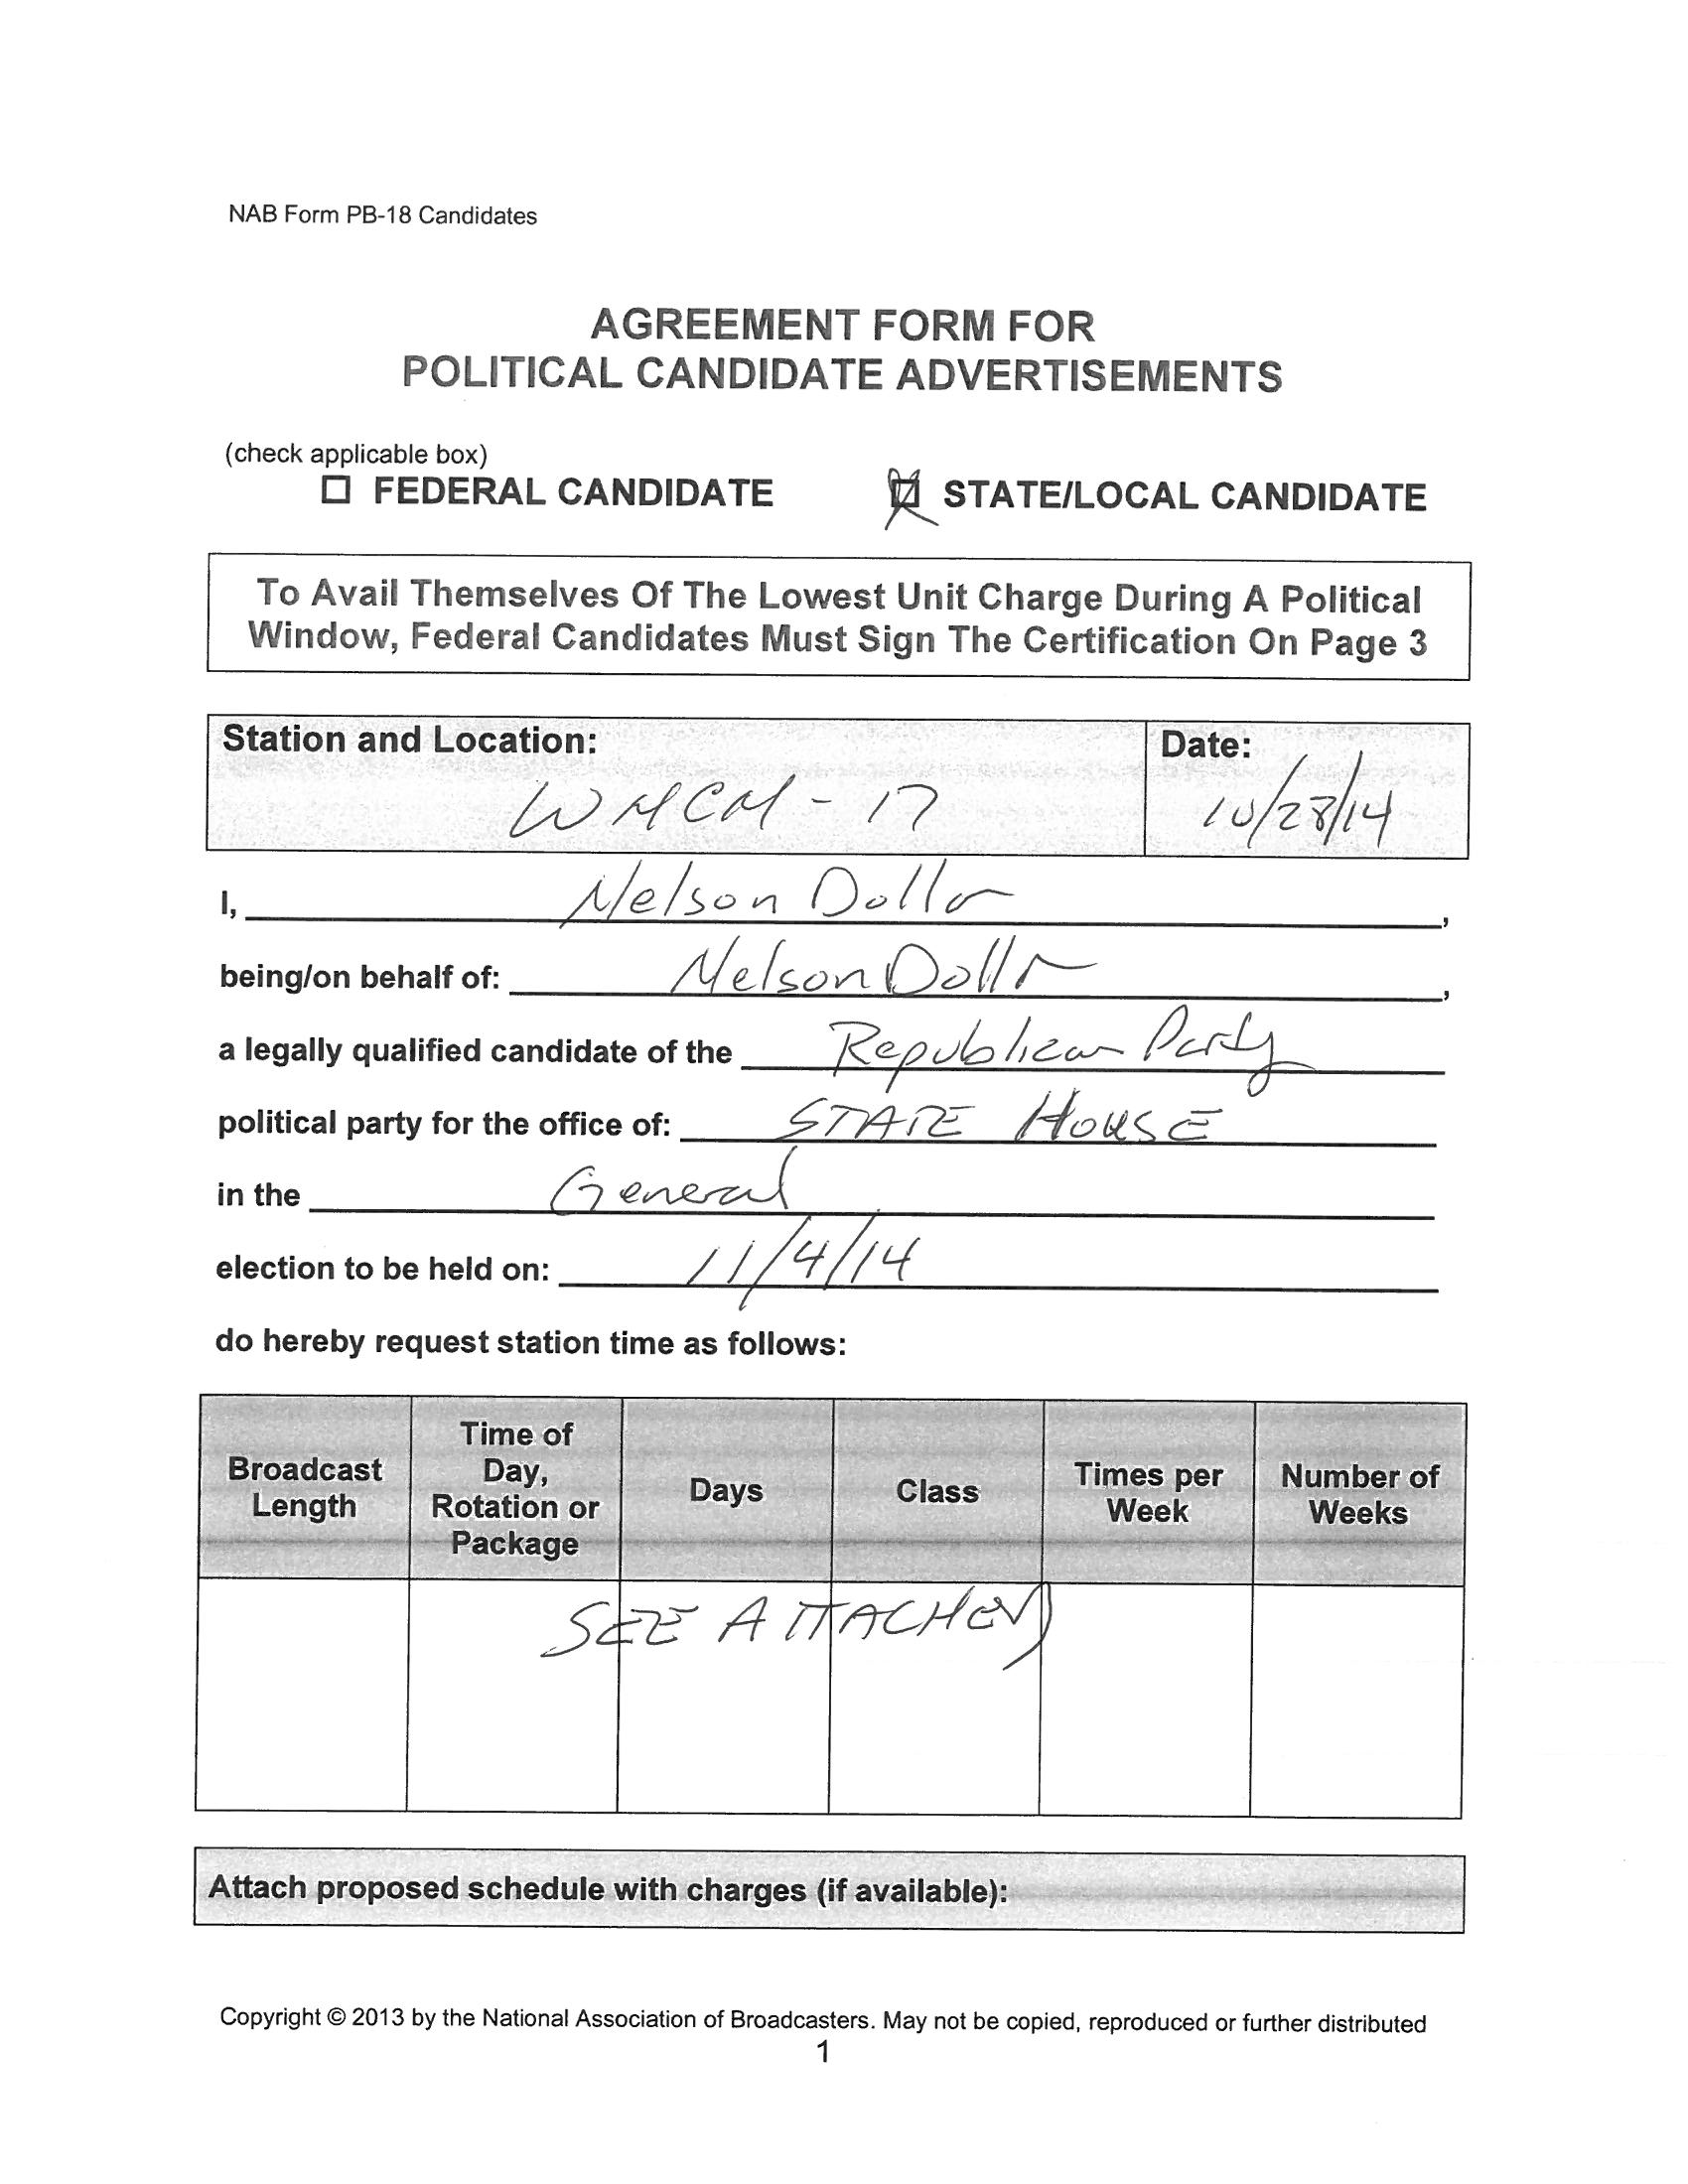 NAB Form PB-18 Candidates
AGREEMENT FORM FOR
POLITICAL CANDIDATE ADVERTISEMENTS
(check applicable box)
☐ FEDERAL CANDIDATE ☒ STATE/LOCAL CANDIDATE
To Avail Themselves Of The Lowest Unit Charge During A Political
Window, Federal Candidates Must Sign The Certification On Page 3
Station and Location: Date:
WMCM - 17 10/28/14
I, Nelson Dollar,
being/on behalf of: Nelson Dollar,
a legally qualified candidate of the Republican Party
political party for the office of: STATE HOUSE
in the General
election to be held on: 11/4/14
do hereby request station time as follows:
Broadcast Length
Time of Day, Rotation or Package
Days
Class
Times per Week
Number of Weeks
SEE ATTACHED
Attach proposed schedule with charges (if available):
Copyright © 2013 by the National Association of Broadcasters. May not be copied, reproduced or further distributed
1